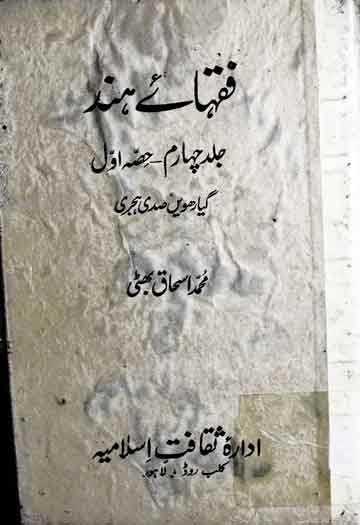 فقہائے ہند
جلد چہارم - حصّہ اوّل
گیارھویں صدی ہجری
محمّد اسحاق بھٹی
ادارۂ ثقافتِ اسلامیہ
کلب روڈ، لاہور